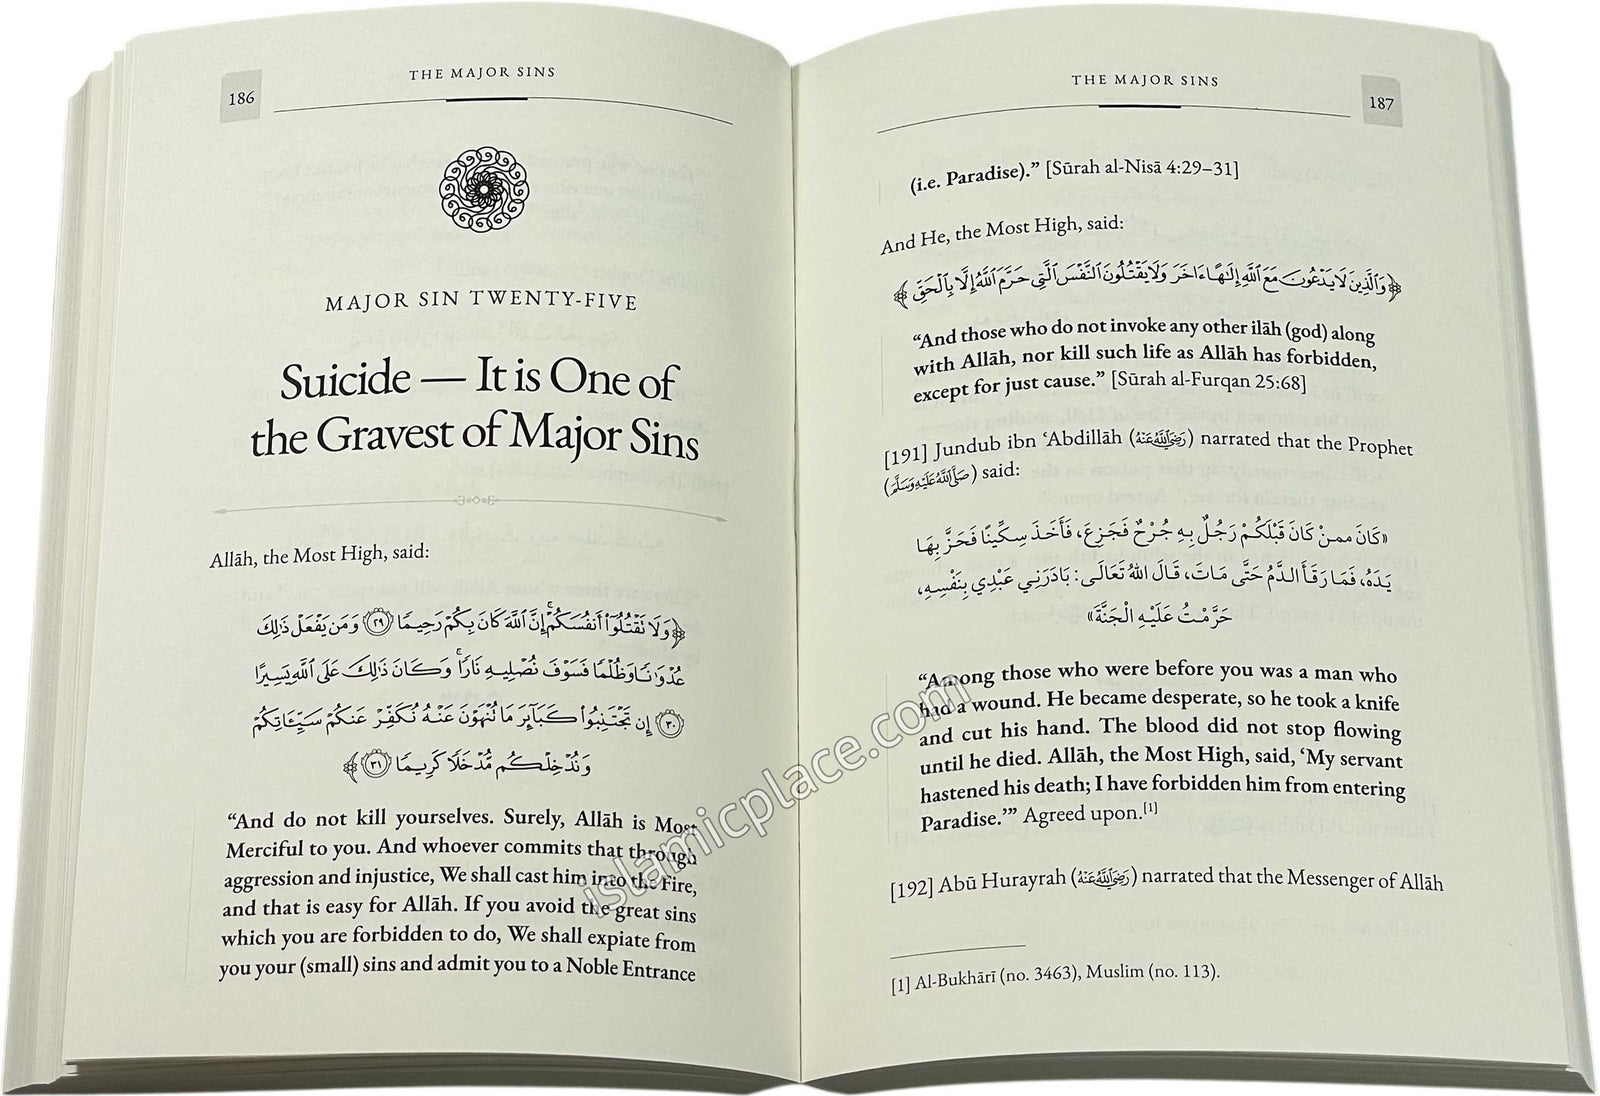 186
THE MAJOR SINS
MAJOR SIN TWENTY-FIVE
Suicide — It is One of
the Gravest of Major Sins
Allāh, the Most High, said:
﴿وَلَا نَقْتُلُوٓا۟ أَنفُسَكُمْ ۚ إِنَّ ٱللَّهَ كَانَ بِكُمْ رَحِيمًا ٢٩ وَمَن يَفْعَلْ ذَٰلِكَ
عُدْوَٰنًا وَظُلْمًا فَسَوْفَ نُصْلِيهِ نَارًا ۚ وَكَانَ ذَٰلِكَ عَلَى ٱللَّهِ يَسِيرًا
٣٠ إِن تَجْتَنِبُوا۟ كَبَآئِرَ مَا نُنْهَوْنَ عَنْهُ نُكَفِّرْ عَنكُمْ سَيِّـَٔاتِكُمْ
وَنُدْخِلْكُم مُّدْخَلًا كَرِيمًا ٣١﴾
“And do not kill yourselves. Surely, Allāh is Most
Merciful to you. And whoever commits that through
aggression and injustice, We shall cast him into the Fire,
and that is easy for Allāh. If you avoid the great sins
which you are forbidden to do, We shall expiate from
you your (small) sins and admit you to a Noble Entrance
THE MAJOR SINS
187
(i.e. Paradise).” [Sūrah al-Nisā 4:29–31]
And He, the Most High, said:
﴿وَٱلَّذِينَ لَا يَدْعُونَ مَعَ ٱللَّهِ إِلَـٰهًا ءَاخَرَ وَلَا يَقْتُلُونَ ٱلنَّفْسَ ٱلَّتِى حَرَّمَ ٱللَّهُ إِلَّا بِٱلْحَقِّ﴾
“And those who do not invoke any other ilāh (god) along
with Allāh, nor kill such life as Allāh has forbidden,
except for just cause.” [Sūrah al-Furqan 25:68]
[191] Jundub ibn ʿAbdillāh (رَضِيَ اللَّهُ عَنْهُ) narrated that the Prophet
(صَلَّى اللَّهُ عَلَيْهِ وَسَلَّمَ) said:
«كَانَ ممنْ كَانَ قَبْلَكُمْ رَجُلٌ بِهِ جُرْحٌ فَجَزِعَ، فَأَخَذَ سِكِّينًا فَحَزَّ بِهَا
يَدَهُ، فَمَا رَقَأَ الدَّمُ حَتَّى مَاتَ، قَالَ اللهُ تَعَالَى: بَادَرَنِي عَبْدِي بِنَفْسِهِ،
حَرَّمْتُ عَلَيْهِ الْجَنَّةَ»
“Among those who were before you was a man who
had a wound. He became desperate, so he took a knife
and cut his hand. The blood did not stop flowing
until he died. Allāh, the Most High, said, ‘My servant
hastened his death; I have forbidden him from entering
Paradise.’” Agreed upon.[1]
[192] Abū Hurayrah (رَضِيَ اللَّهُ عَنْهُ) narrated that the Messenger of Allāh
[1] Al-Bukhārī (no. 3463), Muslim (no. 113).
islamicplace.com